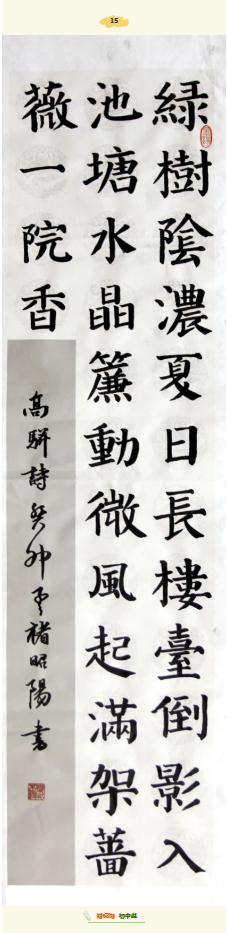 15
綠樹陰濃夏日長樓臺倒影入
池塘水晶簾動微風起滿架薔
薇一院香
高駢詩癸卯夏褚昭陽書
初中組